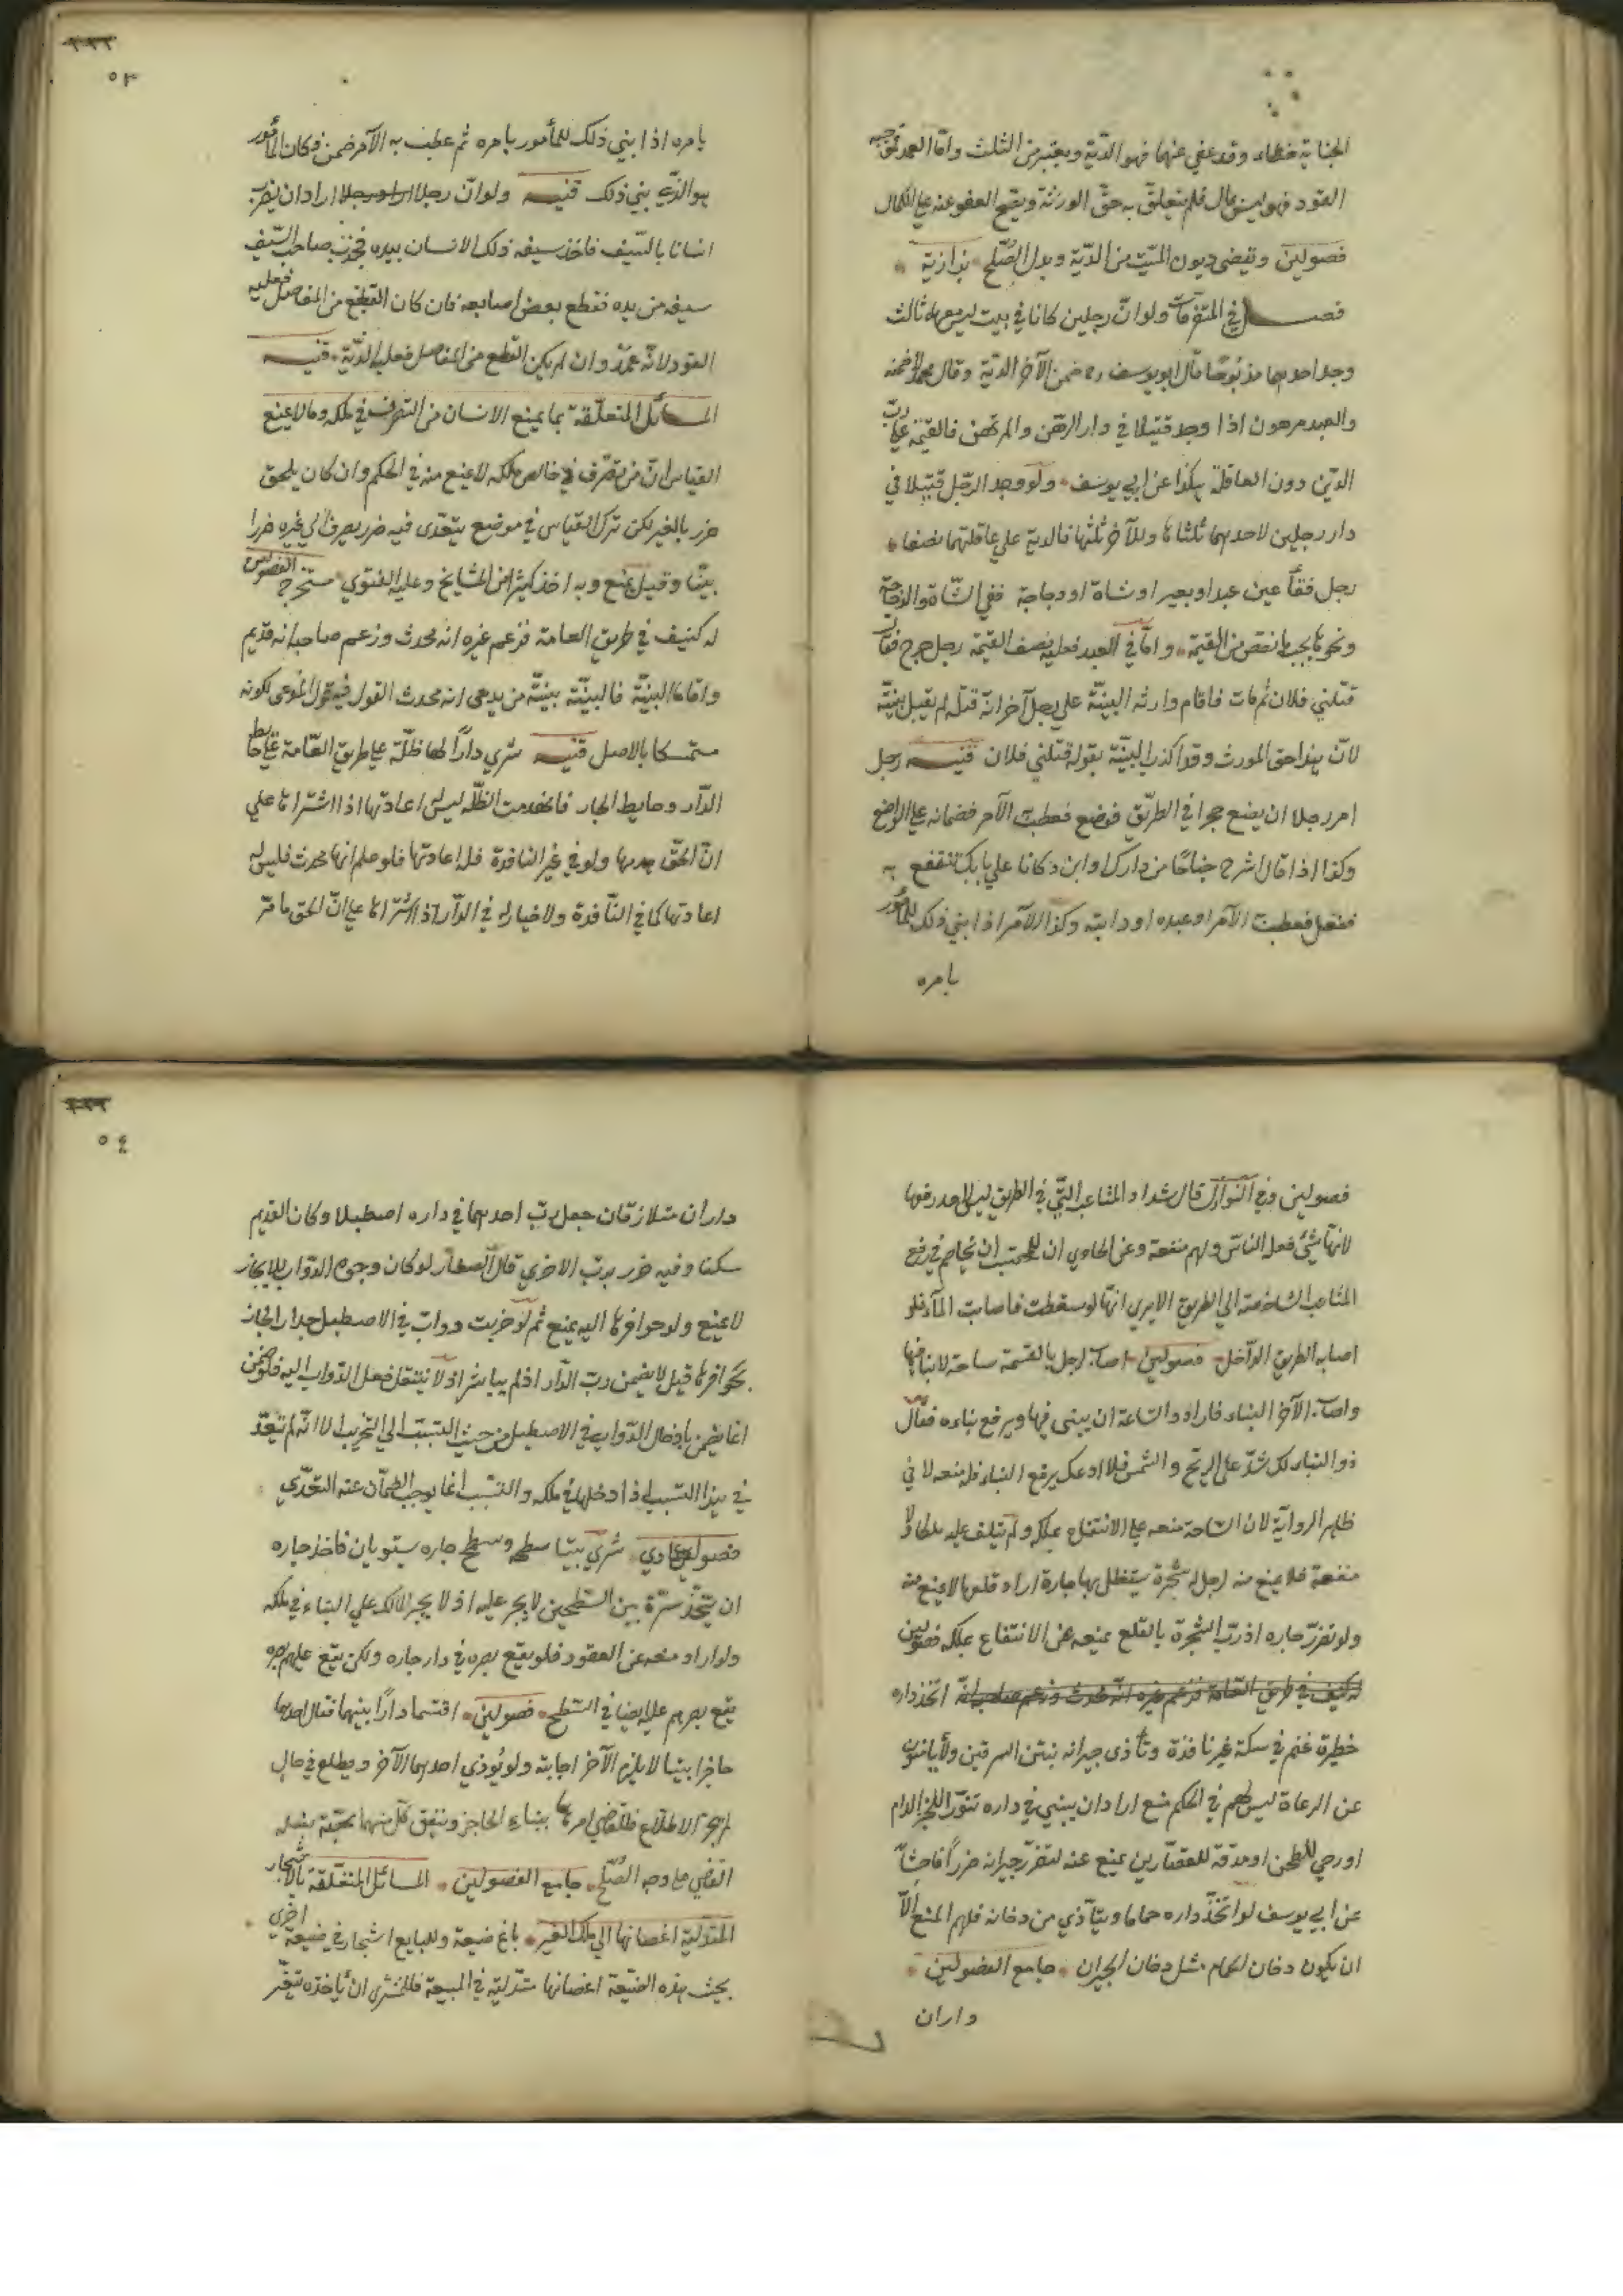 الجناية خطاء وقد عفي عنها فهو الدّية ويعتبر من الثلث وامّا العمد فموجبه
القود فهو ليس بمال فلم يتعلّق به حقّ الورثة ويصحّ العفو عنه علي الكمال
فصولين وتقضي ديون الميّت من الدّية وبدل الصّلح بزازية
فصل في المتفرقات ولو انّ رجلين كانا في بيت ليس معهما ثالث
وجد احدهما مذبوحًا قال ابو يوسف رح ضمن الآخر الدّية وقال محمد لا ضمنه
والعبد مرهون اذا وجد قتيلا في دار الرّهن والمرتهن فالقيمة علي ربّ
الدّين دون العاقلة هكذا عن ابي يوسف ولو وجد الرّجل قتيلا في
دار رجلين لاحدهما ثلثاها وللآخر ثلثها فالدية علي عاقلتهما نصفا
رجل فقأ عين عبد او بعير او شاة او دجاجة ففي الشّاة والدّجاجة
ونحوها يجب ما نقص من القيمة وامّا في العبد فعليه نصف القيمة رجل جرح فقال
قتلني فلان ثم مات فاقام وارثه البينّة علي رجل آخر انّه قتله لم يقبل بينّته
لانّ هذا حق المورث وقد اكذب البينّة بقوله قتلني فلان قنيه رجل
امر رجلا ان يضع حجرا في الطّريق فوضع فعطبت الآمر فضمانه علي الواضع
وكذا اذا قال اشرح جناحًا من دارك او ابن دكانا علي بابك تنتفع به
ففعل فعطبت الآمر او عبده او دابته وكذا الآمر اذا بني ذلك للمأمور
بامره
بامره اذا بني ذلك للمأمور بامره ثم عطب به الآمر ضمن فكان المأمور
هو الذّي بني ذلك قنيه ولو انّ رجلا اراد رجلا اراد ان يضرب
انسانا بالسّيف فاخذ سيفه ذلك الانسان بيده فجذب صاحب السّيف
سيفه من يده فقطع بعض اصابعه فان كان القطع من المفاصل فعليه
القود لانّه عمدٌ وان لم يكن القطع من المفاصل فعليه الدّية قنيه
المسائل المتعلّقة بما يمنع الانسان من التصرف في ملكه وما لا يمنع
القياس انّ من تصرّف في خالص ملكه لا يمنع منه في الحكم وان كان يلحق
ضرر بالغير لكن ترك القياس في موضع يتعدّى فيه ضرر تصرف الي غيره ضررا
بيّنا وقيل يمنع وبه اخذ كثير من المشايخ وعليه الفتوي مستخرج الفصولين
له كنيف في طريق العامة فزعم غيره انه محدث وزعم صاحبه انه قديم
واقاما البينّة فالبينّة بينّة من يدعى انه محدث القول فيه قول المدعى لكونه
متمسكا بالاصل قنيه شري دارًا لها ظلّة علي طريق العّامة علي حايط
الدّار وحايط الجار فانهدمت الظّله ليس اعادتها اذا اشتراها علي
انّ الحقّ بهدمها ولو في غير النافدة فله اعادتها فلو علم انها محدث فليس له
اعادتها كما في النّافدة ولا خيار له في الدّار اذا اشتراها علي انّ الحق ما مرّ
فصولين وفي النّوازل قال شداد المثاعب التّي في الطريق ليس لاحد رفعها
لانّها شيئ فعله الناس ولهم منفعة وعن الحاوي ان للمحتسب ان يخاصم في رفع
المثاعب الشاخصة الي الطريق الا يري انّها لو سقطت فاصابت المآء فلو
اصابه الطريق الدّاخل فصولين اصاب رجل بالقسمة ساحة لا بنا فيها
واصاب الآخر البناء فاراد ذو السّاحة ان يبنى فيها ويرفع بناءه فقال
ذو البناء لك شدّ علي الريّح والشمس فلا ادعك برفع البناء فله منعه لا في
ظاهر الرواية لان السّاحة منعه علي الانتفاع بملكه ولم يتلف عليه ملكا ولا
منفعة فلا يمنع منه رجل له شجرة يتظلل بها جاره اراد قلعها لا يمنع منه
ولو تضرّر جاره اذ ربّ الشجرة بالقلع يمنعه عن الانتفاع بملكه فصولين
له كنيف في طريق العامة فزعم غيره انه محدث وزعم صاحبه انه اتخذ داره
حظيرة غنم في سكة غير نافذة وتأذى جيرانه بنتن السرقين ولا يأمنون
عن الرعاة ليس لهم في الحكم منع اراد ان يبني في داره تنّورا للخبز الدام
او رحي للطحن او مدقة للقصّارين يمنع عنه لتضرّر جيرانه ضررًا فاحشًا
عن ابي يوسف لو اتخذّ داره حماما ويتأذي من دخانه فلهم المنع الّا
ان يكون دخان الحمام مثل دخان الجيران جامع الفصولين
داران
داران متلازقان جعل ربّ احدهما في داره اصطبلا وكان القديم
سكنا وفيه ضرر بربّ الاخري قال الصفار لو كان وجوه الدّواب للايجار
لا يمنع ولو حوافرها اليه يمنع ثم لو خربت دوابّ في الاصطبل جدار الجار
بحوافرها قيل لا يضمن ربّ الدّار اذ لم يباشر اذ لا ينتقل فعل الدّواب اليه فلو ضمن
انما يضمن بادخال الدّواب في الاصطبل من حيث التسبّب الي التخريب الا انّه لم يتعدّ
في هذا التسبب اذا دخلها في ملكه والتسّبب انما يوجب الضمان عند التعدّي
فصول عمادي شري بيتا سطحه وسطح جاره ستويان فاخذ جاره
ان يتخّذ سترة بين السّطحين لا يجبر عليه اذ لا يجبر المالك علي البناء في ملكه
ولو اراد منعه عن الصعود فلو يقع بصره في دار جاره ولكن يقع عليهم بصره
يقع بصرهم عليه ايضا في السّطح فصولين اقتسما دارًا بينهما فقال احدهما
حاجزا بيننا لا يلزم الآخر اجابته ولو يُوذي احدهما الآخر ويطلع في حال
الاطلاع فللقاضي امرهما ببناء الحاجز وينفق كل منهما بحصّته يفعله
القاضي علي وجه الصّلح جامع الفصولين المسائل المتعلّقة بالاشجار
المتدلّية اغصانها الي ملك الغير باع ضيعة وللبايع اشجار في ضيعة اخري
بجنب هذه الضيّعة اغصانها متدلّية في المبيعة فللمشتري ان يأخذه بتفريغ